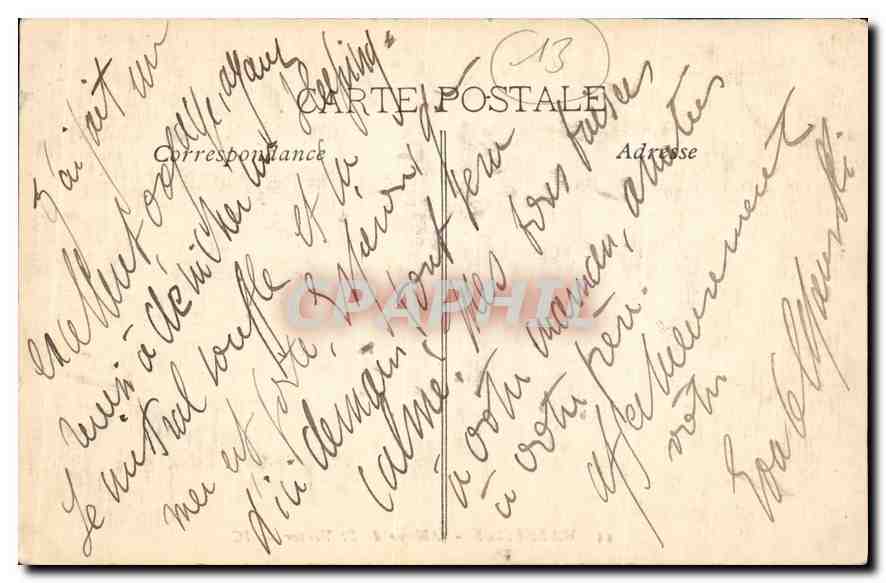 13
CARTE POSTALE
Correspondance
Adresse
J'ai fait un
excellent voyage, ayant
réussi à dénicher un sleeping.
Le mistral souffle et la
mer est forte, espérons que
d'ici demain tout sera
calmé. Mes très
à votre maman, amitiés
à votre père.
affectueusement
votre
CPAPHIL